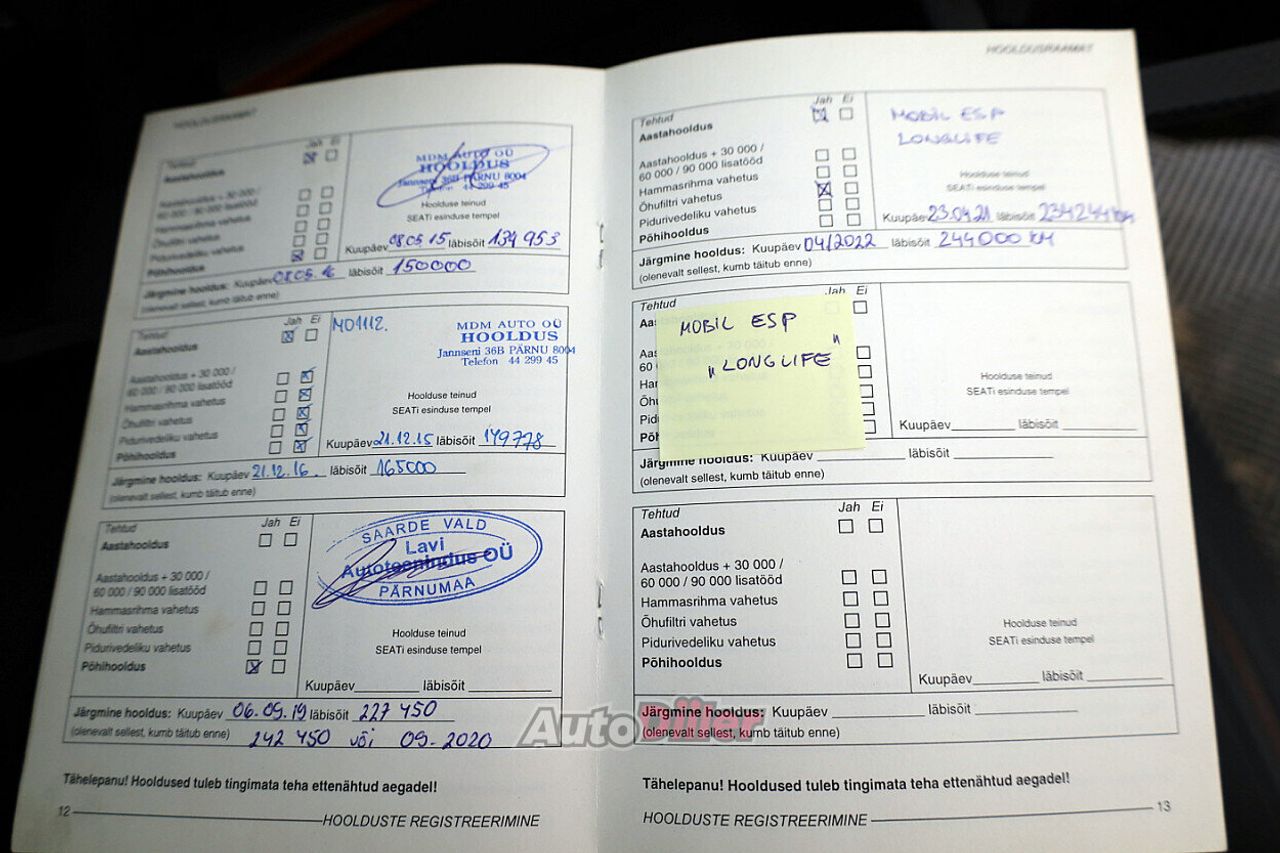 HOOLDUSRAAMAT
Tehtud
Jah Ei
Aastahooldus
Aastahooldus + 30 000 /
60 000 / 90 000 lisatööd
Hammasrihma vahetus
Õhufiltri vahetus
Pidurivedeliku vahetus
Põhihooldus
MDM AUTO OÜ
HOOLDUS
Jannseni 36B PÄRNU 8004
Telefon 44 299 45
Hoolduse teinud
SEATi esinduse tempel
Kuupäev 08.05.15 läbisõit 134 953
Järgmine hooldus: Kuupäev 08.05.16 läbisõit 150000
(olenevalt sellest, kumb täitub enne)
Tehtud
Jah Ei
Aastahooldus
Aastahooldus + 30 000 /
60 000 / 90 000 lisatööd
Hammasrihma vahetus
Õhufiltri vahetus
Pidurivedeliku vahetus
Põhihooldus
MO1112.
MDM AUTO OÜ
HOOLDUS
Jannseni 36B PÄRNU 8004
Telefon 44 299 45
Hoolduse teinud
SEATi esinduse tempel
Kuupäev 21.12.15 läbisõit 149778
Järgmine hooldus: Kuupäev 21.12.16. läbisõit 165000
(olenevalt sellest, kumb täitub enne)
Tehtud
Jah Ei
Aastahooldus
Aastahooldus + 30 000 /
60 000 / 90 000 lisatööd
Hammasrihma vahetus
Õhufiltri vahetus
Pidurivedeliku vahetus
Põhihooldus
SAARDE VALD
Lavi
Autoteenindus OÜ
PÄRNUMAA
Hoolduse teinud
SEATi esinduse tempel
Kuupäev läbisõit
Järgmine hooldus: Kuupäev 06.09.19 läbisõit 227 450
(olenevalt sellest, kumb täitub enne) 242 450 või 09.2020
Tähelepanu! Hooldused tuleb tingimata teha ettenähtud aegadel!
12
HOOLDUSTE REGISTREERIMINE
HOOLDUSRAAMAT
Tehtud
Jah Ei
Aastahooldus
Aastahooldus + 30 000 /
60 000 / 90 000 lisatööd
Hammasrihma vahetus
Õhufiltri vahetus
Pidurivedeliku vahetus
Põhihooldus
MOBIL ESP
LONGLIFE
Hoolduse teinud
SEATi esinduse tempel
Kuupäev 23.04.21 läbisõit 234244km
Järgmine hooldus: Kuupäev 04/2022 läbisõit 244000 KM
(olenevalt sellest, kumb täitub enne)
Tehtud
Jah Ei
MOBIL ESP
„LONGLIFE"
Hoolduse teinud
SEATi esinduse tempel
Kuupäev läbisõit
Järgmine hooldus: Kuupäev läbisõit
(olenevalt sellest, kumb täitub enne)
Tehtud
Jah Ei
Aastahooldus
Aastahooldus + 30 000 /
60 000 / 90 000 lisatööd
Hammasrihma vahetus
Õhufiltri vahetus
Pidurivedeliku vahetus
Põhihooldus
Hoolduse teinud
SEATi esinduse tempel
Kuupäev läbisõit
Järgmine hooldus: Kuupäev läbisõit
(olenevalt sellest, kumb täitub enne)
Tähelepanu! Hooldused tuleb tingimata teha ettenähtud aegadel!
HOOLDUSTE REGISTREERIMINE
13
AutoDiiler